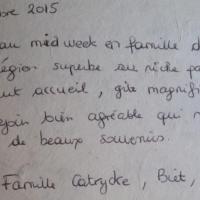 bre 2015
au midweek en famille d
égion superbe au riche pa
ut accueil, gîte magnifi
ejoin bien agréable qui n
de beaux souvenirs.
Famille Catrycke, Biet,